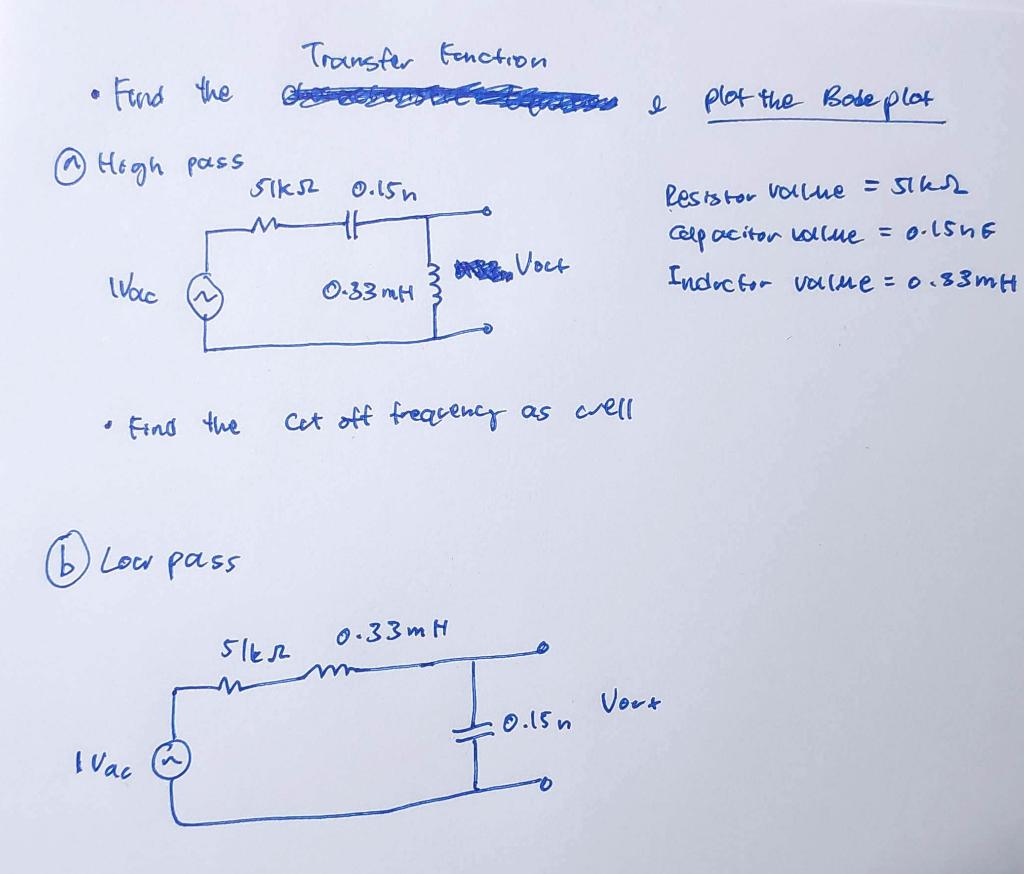 Transfer Function
• Find the & plot the Bode plot
ⓐ High pass
51kΩ 0.15n
Resistor value = 51kΩ
Capacitor value = 0.15nF
Inductor value = 0.33mH
1Vac
0.33mH
Vout
• Find the cut off frequency as well
ⓑ Low pass
51kΩ
0.33mH
Vout
0.15n
1Vac